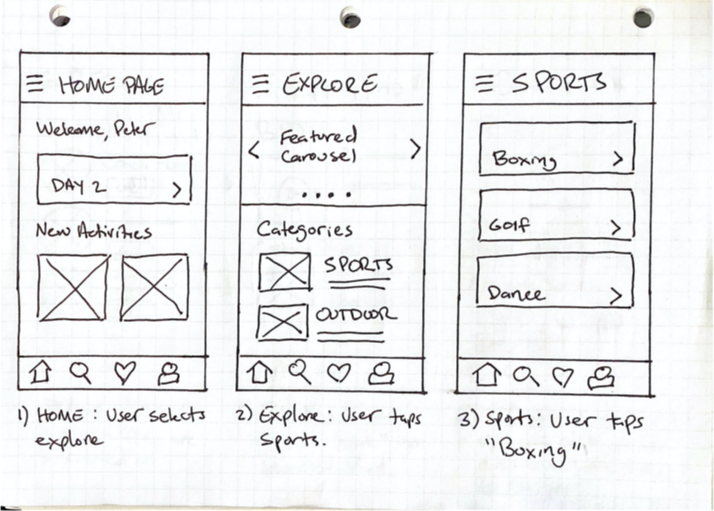 HOME PAGE
Welcome, Peter
DAY 2
New Activities
1) HOME : User selects
explore
EXPLORE
Featured
Carousel
Categories
SPORTS
OUTDOOR
2) Explore: User taps
Sports.
SPORTS
Boxing
Golf
Dance
3) Sports: User taps
"Boxing"